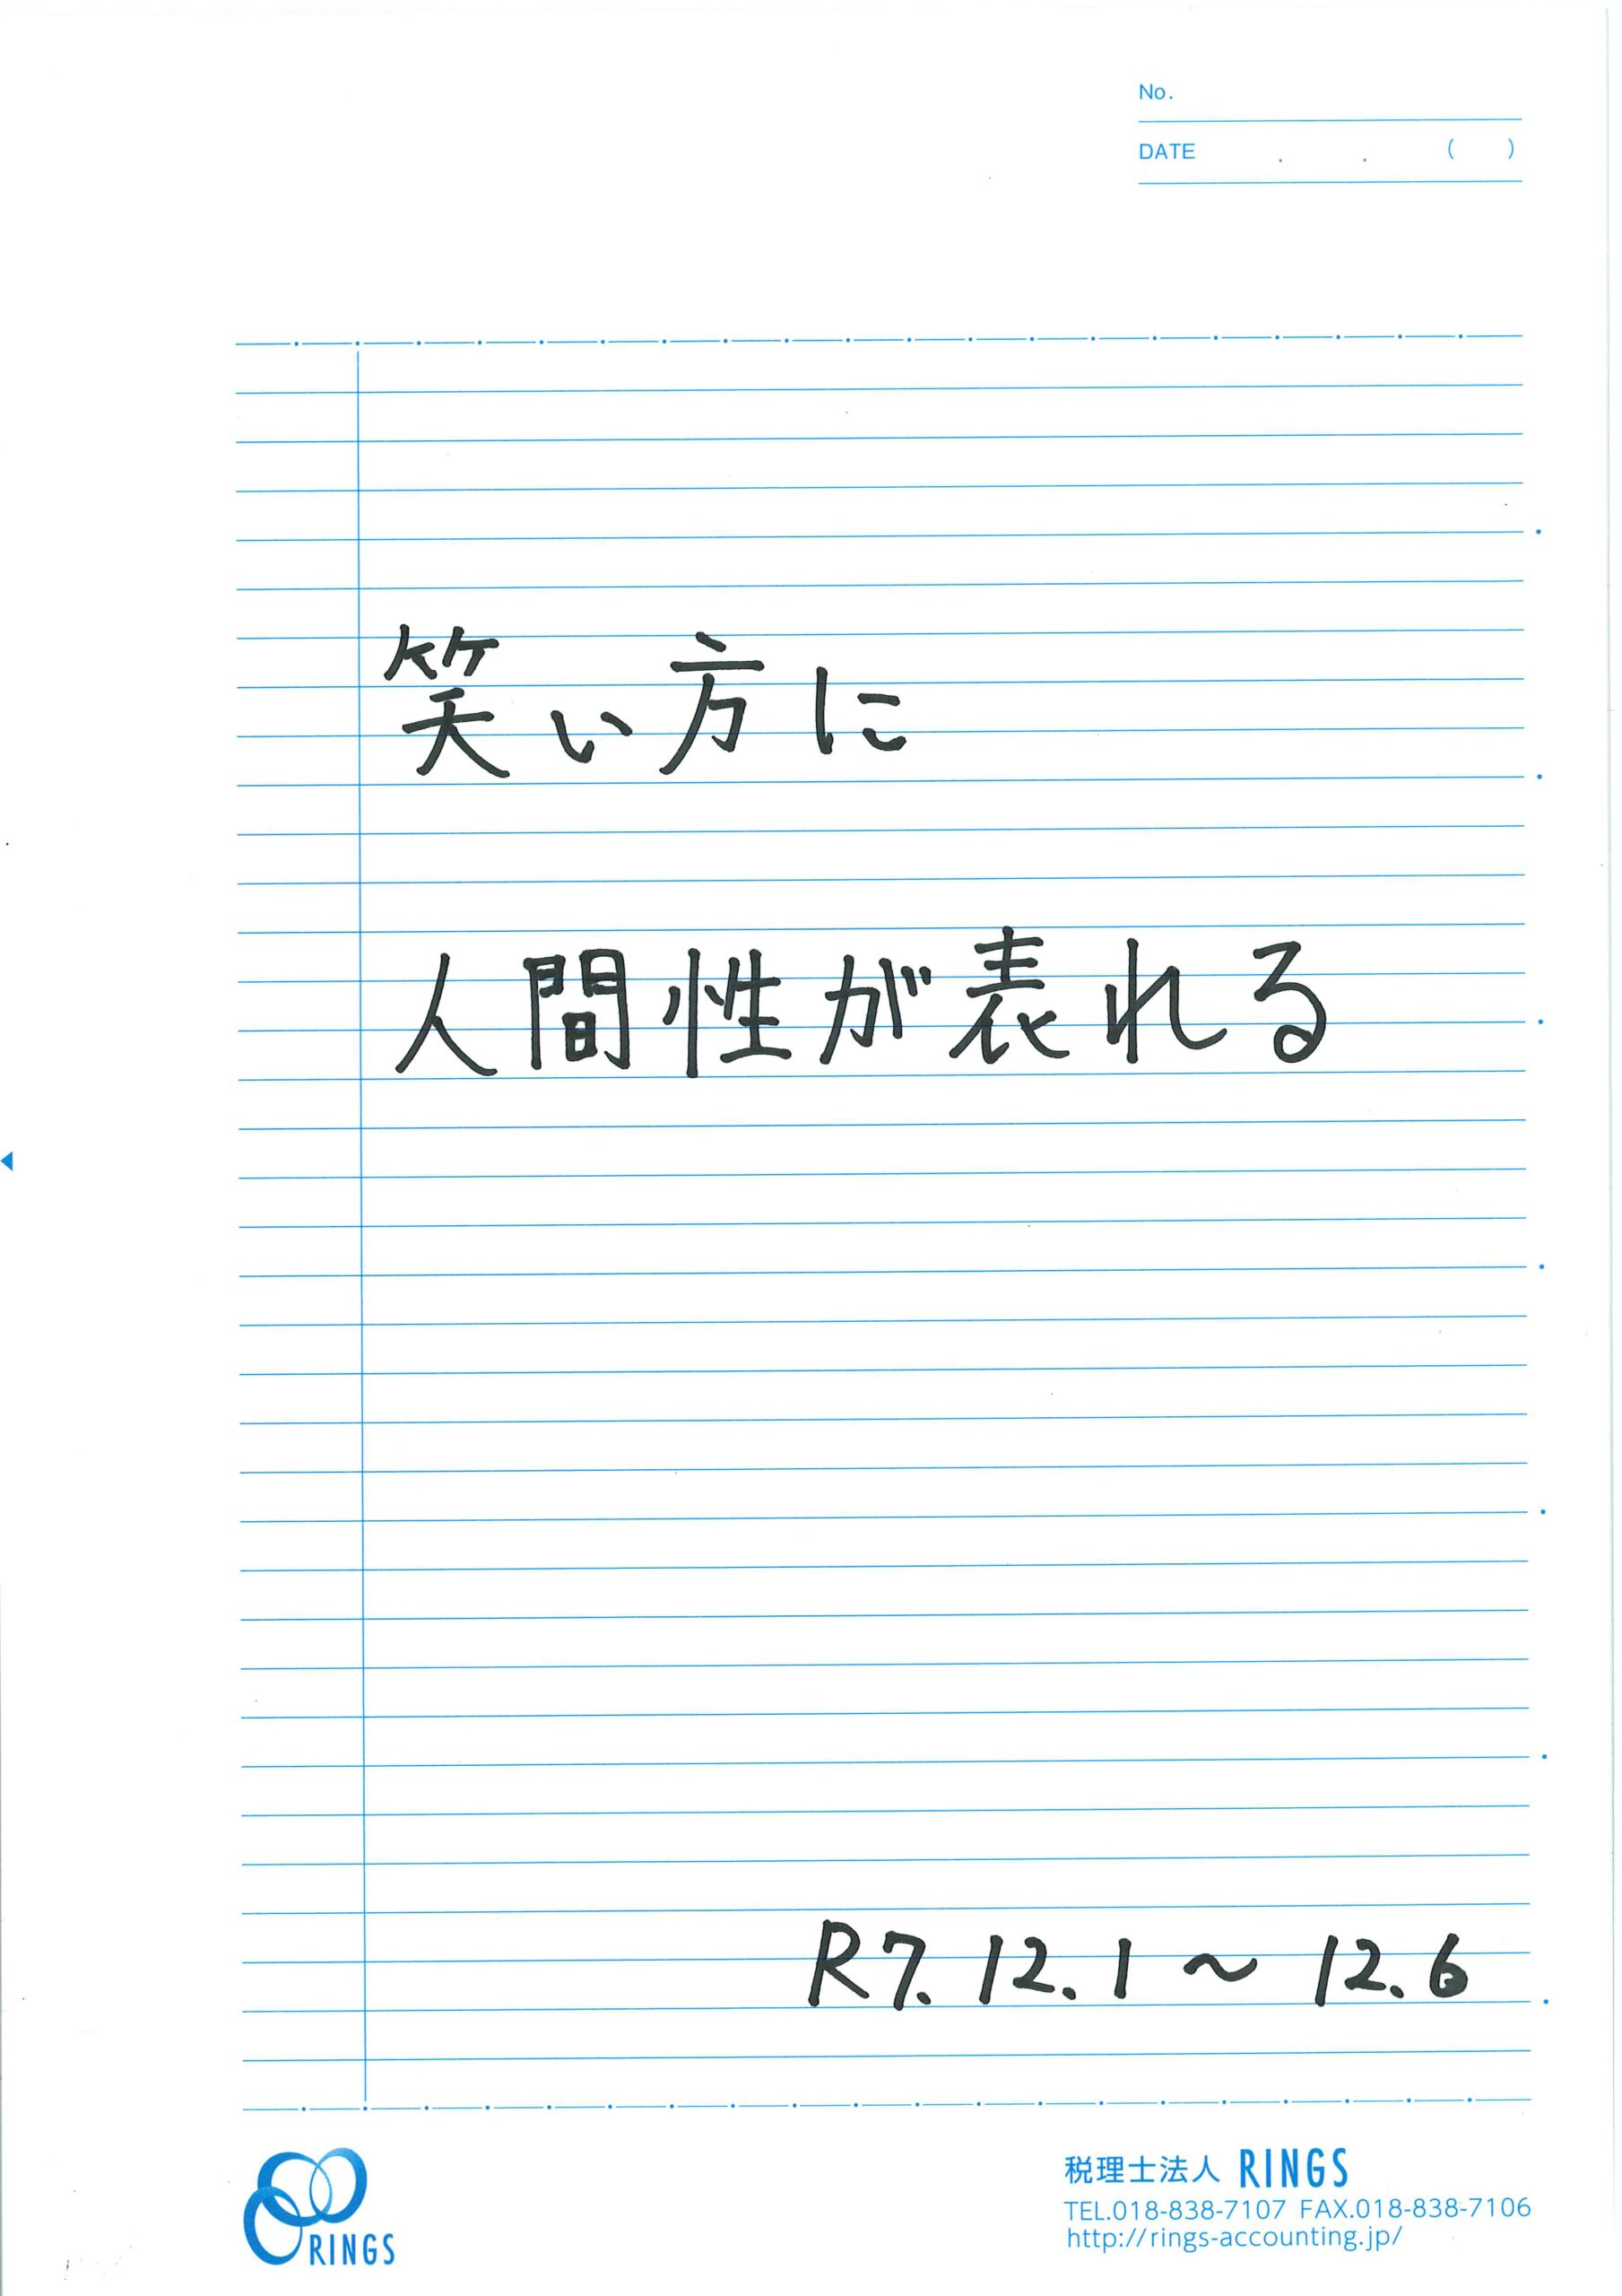 No.
DATE . . ( )
笑い方に
人間性が表れる
R7. 12. 1 ~ 12. 6
RINGS
税理士法人 RINGS
TEL.018-838-7107 FAX.018-838-7106
http://rings-accounting.jp/